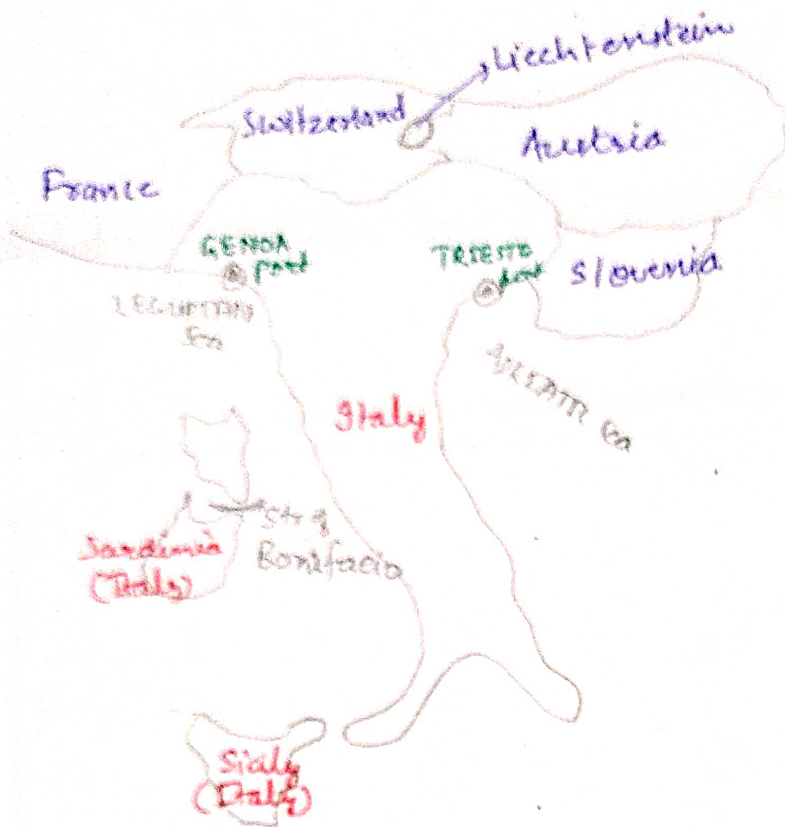 Liechtenstein
Switzerland
Austria
France
GENOA
port
TRIESTE
port
Slovenia
Sea
Italy
Str of
Bonifacio
Sardinia
(Italy)
Sialy
(Italy)